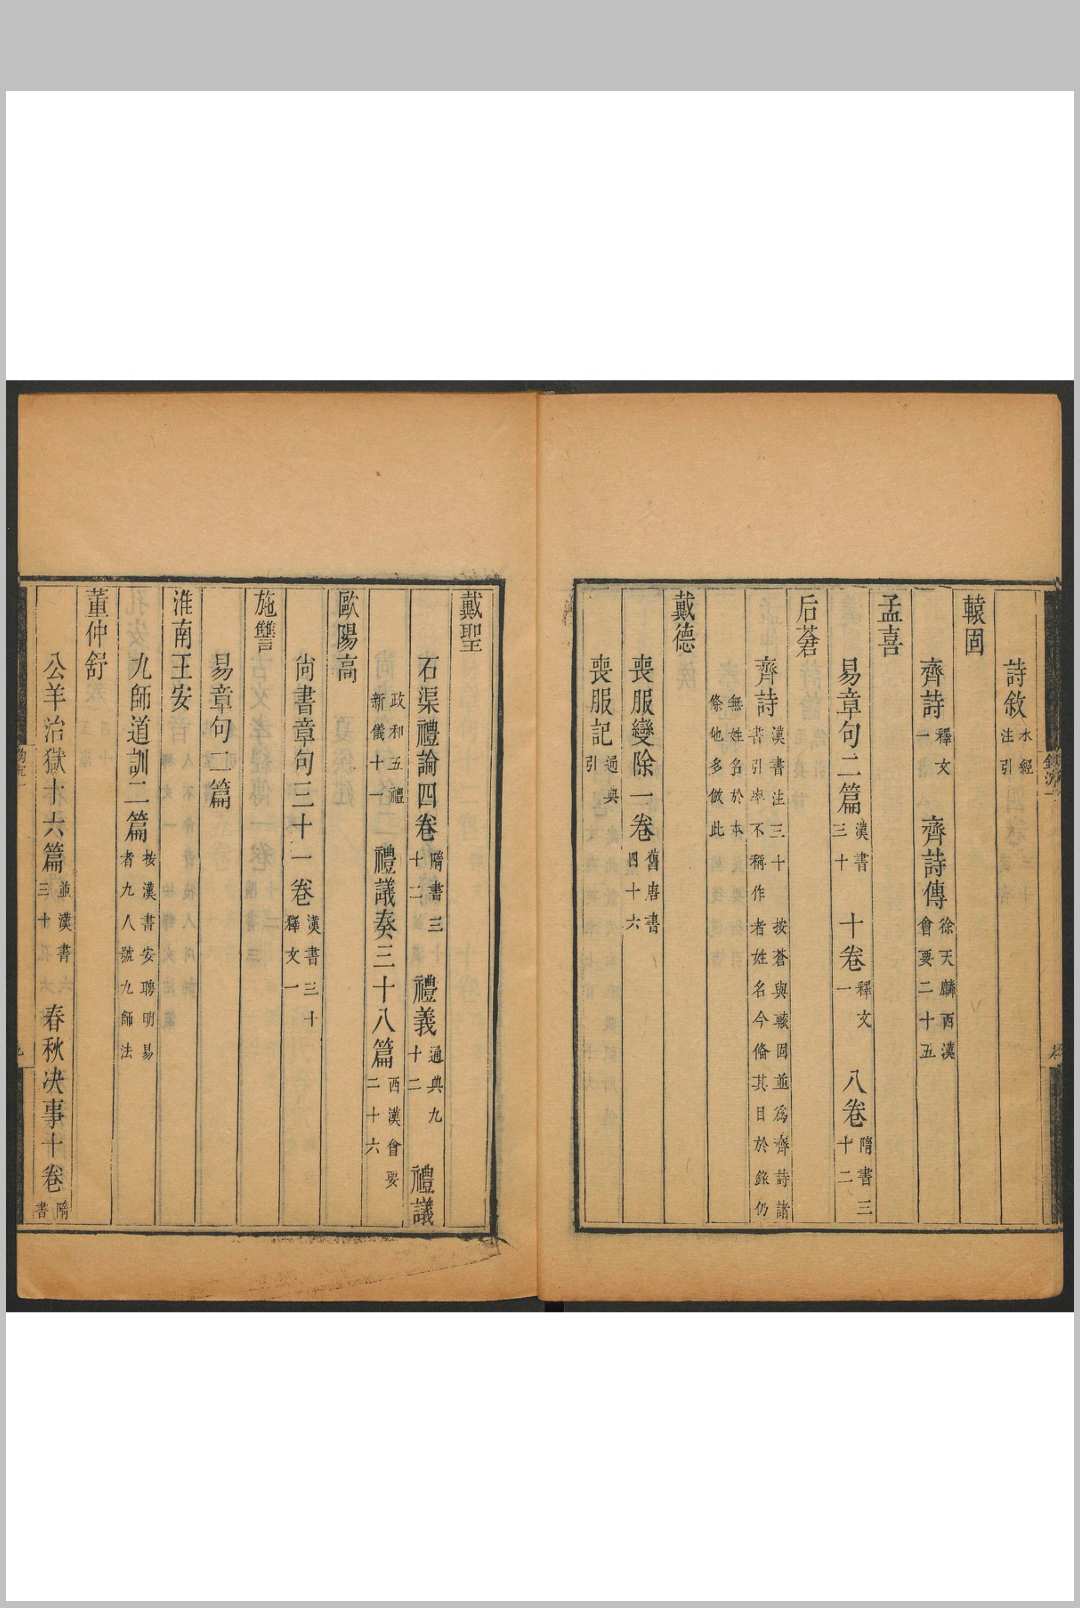 詩敘水經注引
轅固
齊詩釋文一　齊詩傳徐天麟西漢會要二十五
孟喜
易章句二篇漢書三十　十卷釋文一　八卷隋書三十二
后蒼
齊詩漢書注三十　按蒼與轅固並為齊詩諸書引率不稱作者姓名今脩其目於錄仍
無姓名於本條他多倣此
戴德
喪服變除一卷舊唐書四十六
喪服記通典引
戴聖
石渠禮論四卷隋書三十二　禮義通典九十二　禮議
政和五禮新儀十一　禮議奏三十八篇西漢會要二十六
歐陽高
尚書章句三十一卷漢書三十　釋文一
施讐
易章句二篇
淮南王安
九師道訓二篇按漢書安聘明易者九人號九師法
董仲舒
公羊治獄十六篇並漢書三十　春秋決事十卷隋書